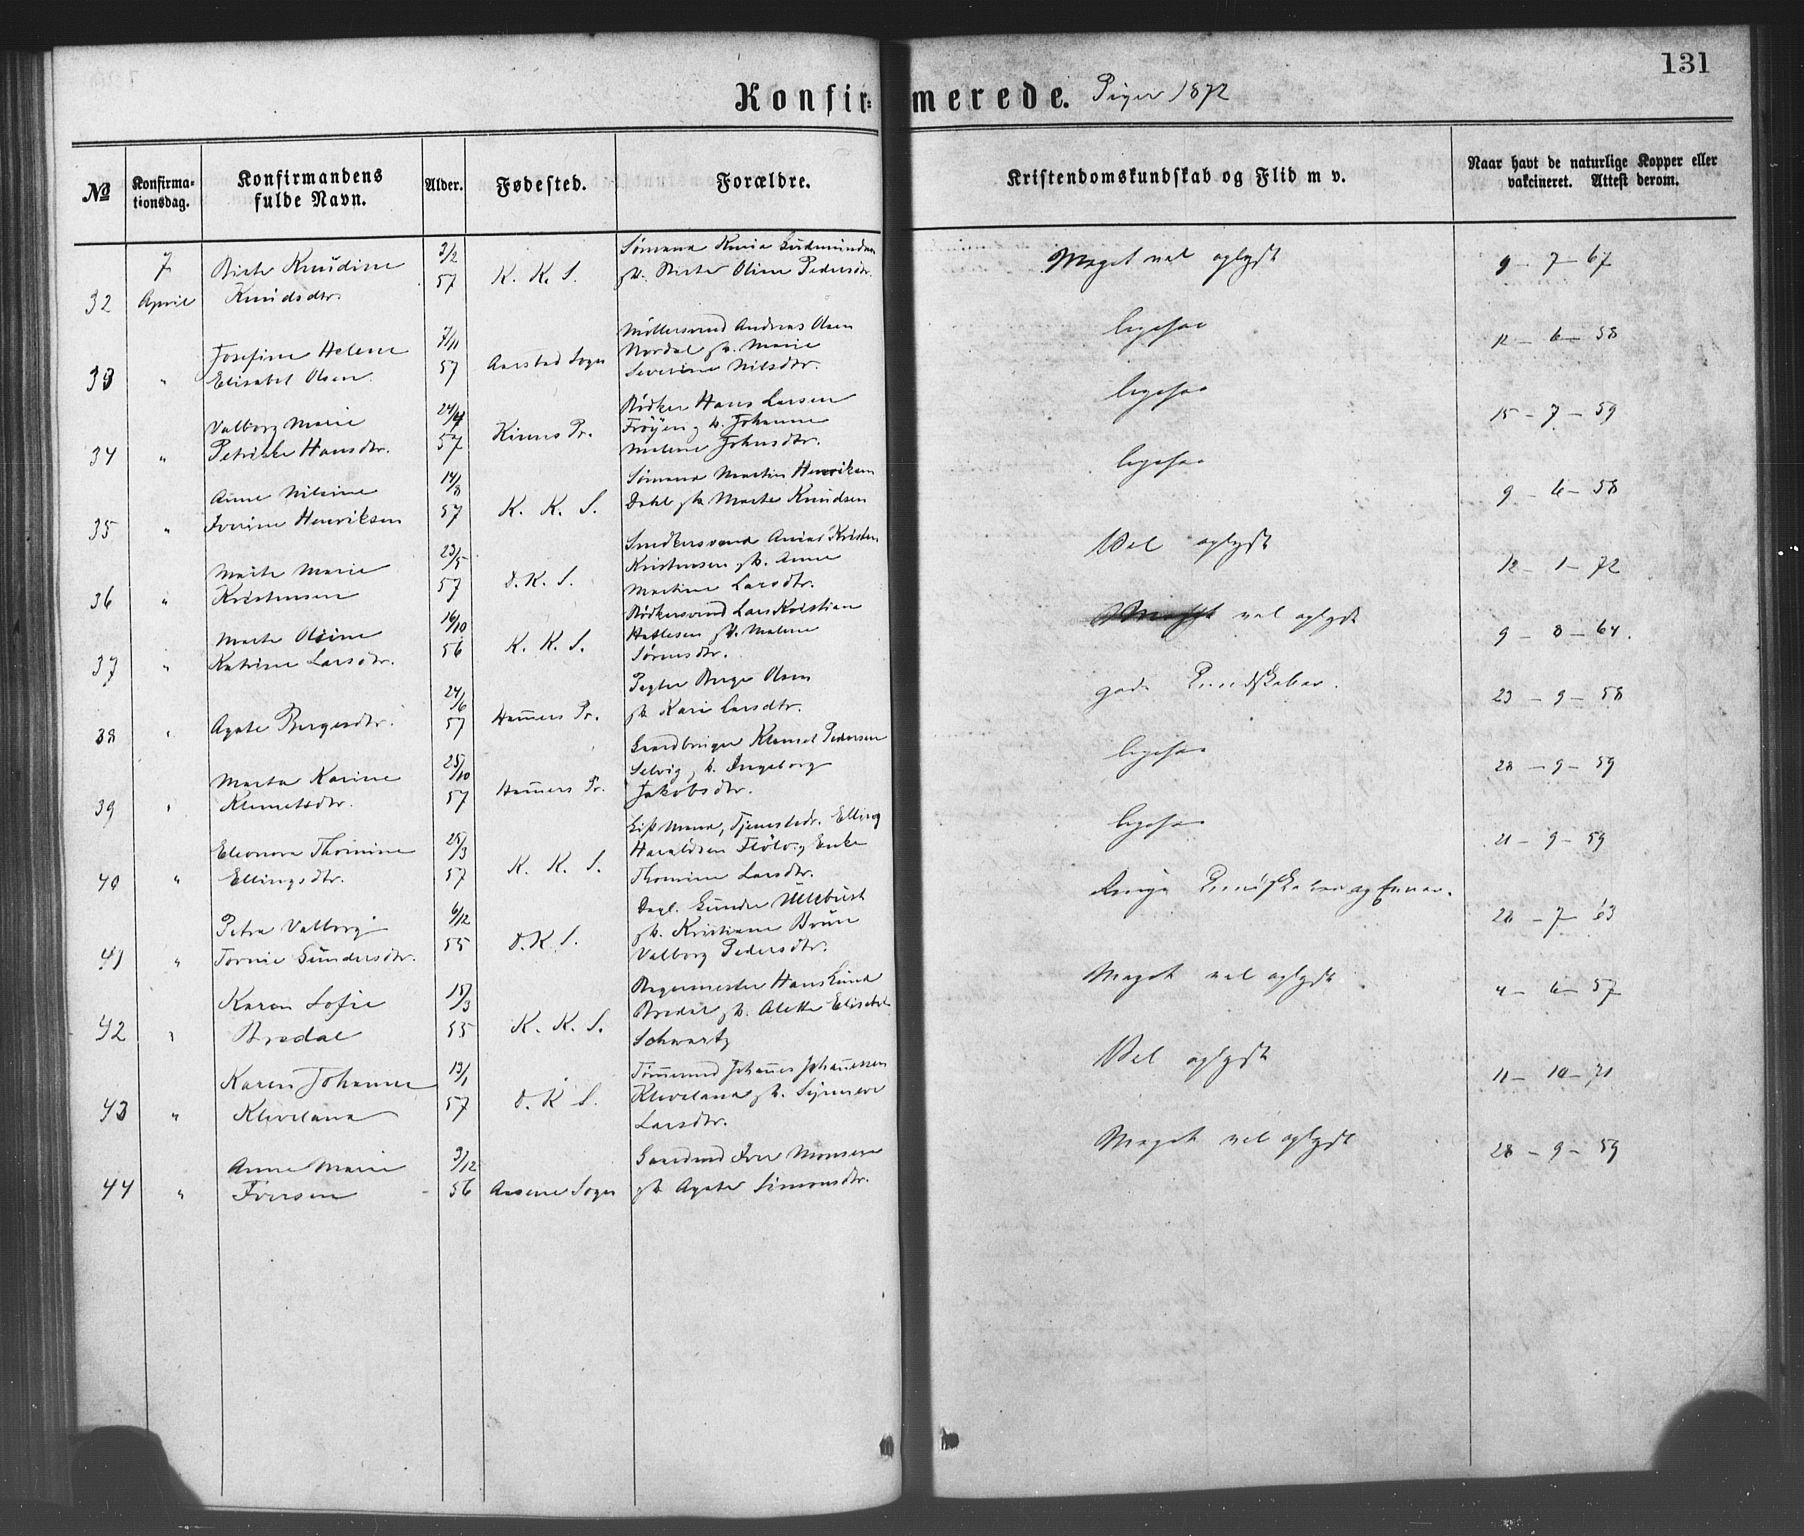 131
Konfir=merede. Piger 1872
No
Konfirma-
tionsdag.
Konfirmandens
fulde Navn.
Alder.
Fødested.
Forældre.
Kristendomskundskab og Flid m v.
Naar havt de naturlige Kopper eller
vakcineret. Attest derom.
32 7 April
Knudine
Knudsdtr.
3/2 57
K. K. S.
Sømand
Oline Pedersdtr.
Meget vel oplyst
9 - 7 - 67
33 "
Josefine Helene
Elisabet Olsen.
7/11 57
Aarstad Sogn
Møllersvend Andreas Olsen
Nordal Marie
Severine Nilsdtr.
ligesaa
12 - 6 - 58
34 "
Valborg Marie
Petrikke Hansdtr.
57
Kinns Pr.
Bødker Hans Larsen
Frøyen Johanne
Malene Johnsdtr.
ligesaa
15 - 7 - 59
35 "
Anne Nilsine
Iverine Henriksen
14/8 57
K. K. S.
Sømand Martin Henriksen
Dahl Marte Knudsen
ligesaa
9 - 6 - 58
36 "
Marie
Kristensen
23/5 57
D. K. S.
Kristensen Anne
Martine Larsdtr.
Vel oplyst
12 - 1 - 72
37 "
Marte Oline
Katrine Larsdtr.
16/10 56
K. K. S.
Bødkersvend Lars Kristian
Hatlesen Malene
Sørensdtr.
vel oplyst
9 - 8 - 64.
38 "
Agate Bergesdtr.
24/6 57
Hammers Pr.
Berge Olsen
Kari Larsdtr.
gode Kundskaber.
23 - 9 - 58
39 "
Marta Karine
Klemetsdtr.
25/10 57
Hammers Pr.
Gaardbruger Klemet Pedersen
Selvig Ingeborg
Jakobsdtr.
ligesaa
28 - 9 - 59
40 "
Eleonora Thomine
Ellingsdtr.
25/3 57
K. K. S.
Elling
Haraldsen Enke
Thomine Larsdtr.
ligesaa
21 - 9 - 59
41 "
Petra Valborg
Gundersdtr.
6/12 55
D. K. S.
Gunder Ullebust
Kristiane Brun
Valborg Pedersdtr.
Kundskaber og Evner.
28 - 7 - 63
42 "
Karen Sofie
Bredal
15/3 55
K. K. S.
Hans Lund
Bredal Alette Elisabet
Schwartz
Meget vel oplyst
4 - 6 - 57
43 "
Karen Johanne
Kleveland
13/1 57
D. K. S.
Tømmermd Johannes Johannessen
Kleveland Synneve
Larsdtr.
Vel oplyst
11 - 10 - 71
44 "
Anne Marie
Iversen
3/12 56
Aasene Sogn
Gaardmd Iver Monsen
Agate Simonsdtr.
Meget vel oplyst
28 - 9 - 59